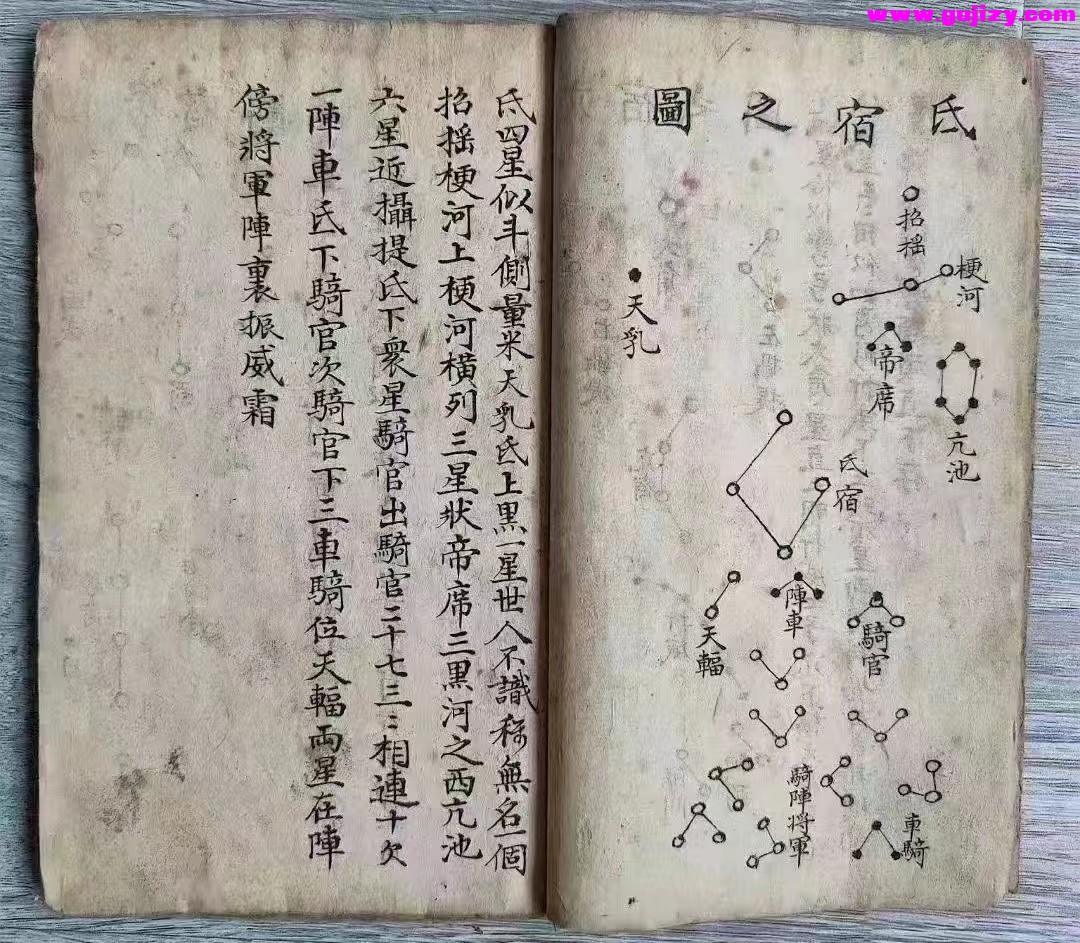 www.gujizy.com
氐宿之圖
招摇
梗河
帝席
亢池
天乳
氐宿
陣車
騎官
天輻
騎陣將軍
車騎
氐四星似斗側量米天乳氐上黒一星世人不識称無名一個
招摇梗河上梗河横列三星狀帝席三黒河之西亢池
六星近攝提氐下衆星騎官出騎官二十七三〻相連十欠
一陣車氐下騎官次騎官下三車騎位天輻両星在陣
傍將軍陣裏振威霜